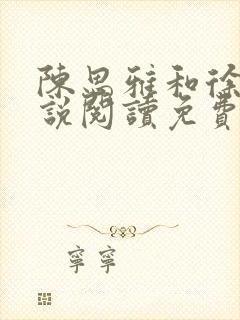 陳思雅和徐
說閱讀免費
寧寧